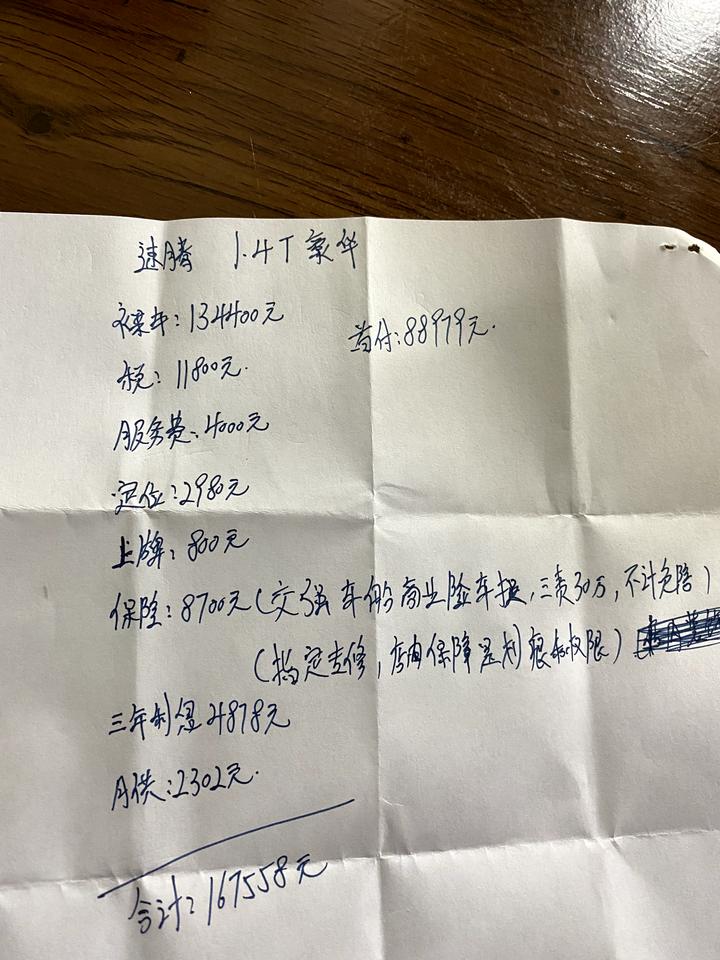 速腾 1.4T 豪华
裸车:134400元
首付:88979元.
税:11800元.
服务费:4000元
定位:2980元
上牌:800元
保险:8700元(交强 车船 商业险车损,三责30万,不计免赔)
(指定专修,店内保障 权限)
三年利息4878元
月供:2302元.
合计:167558元